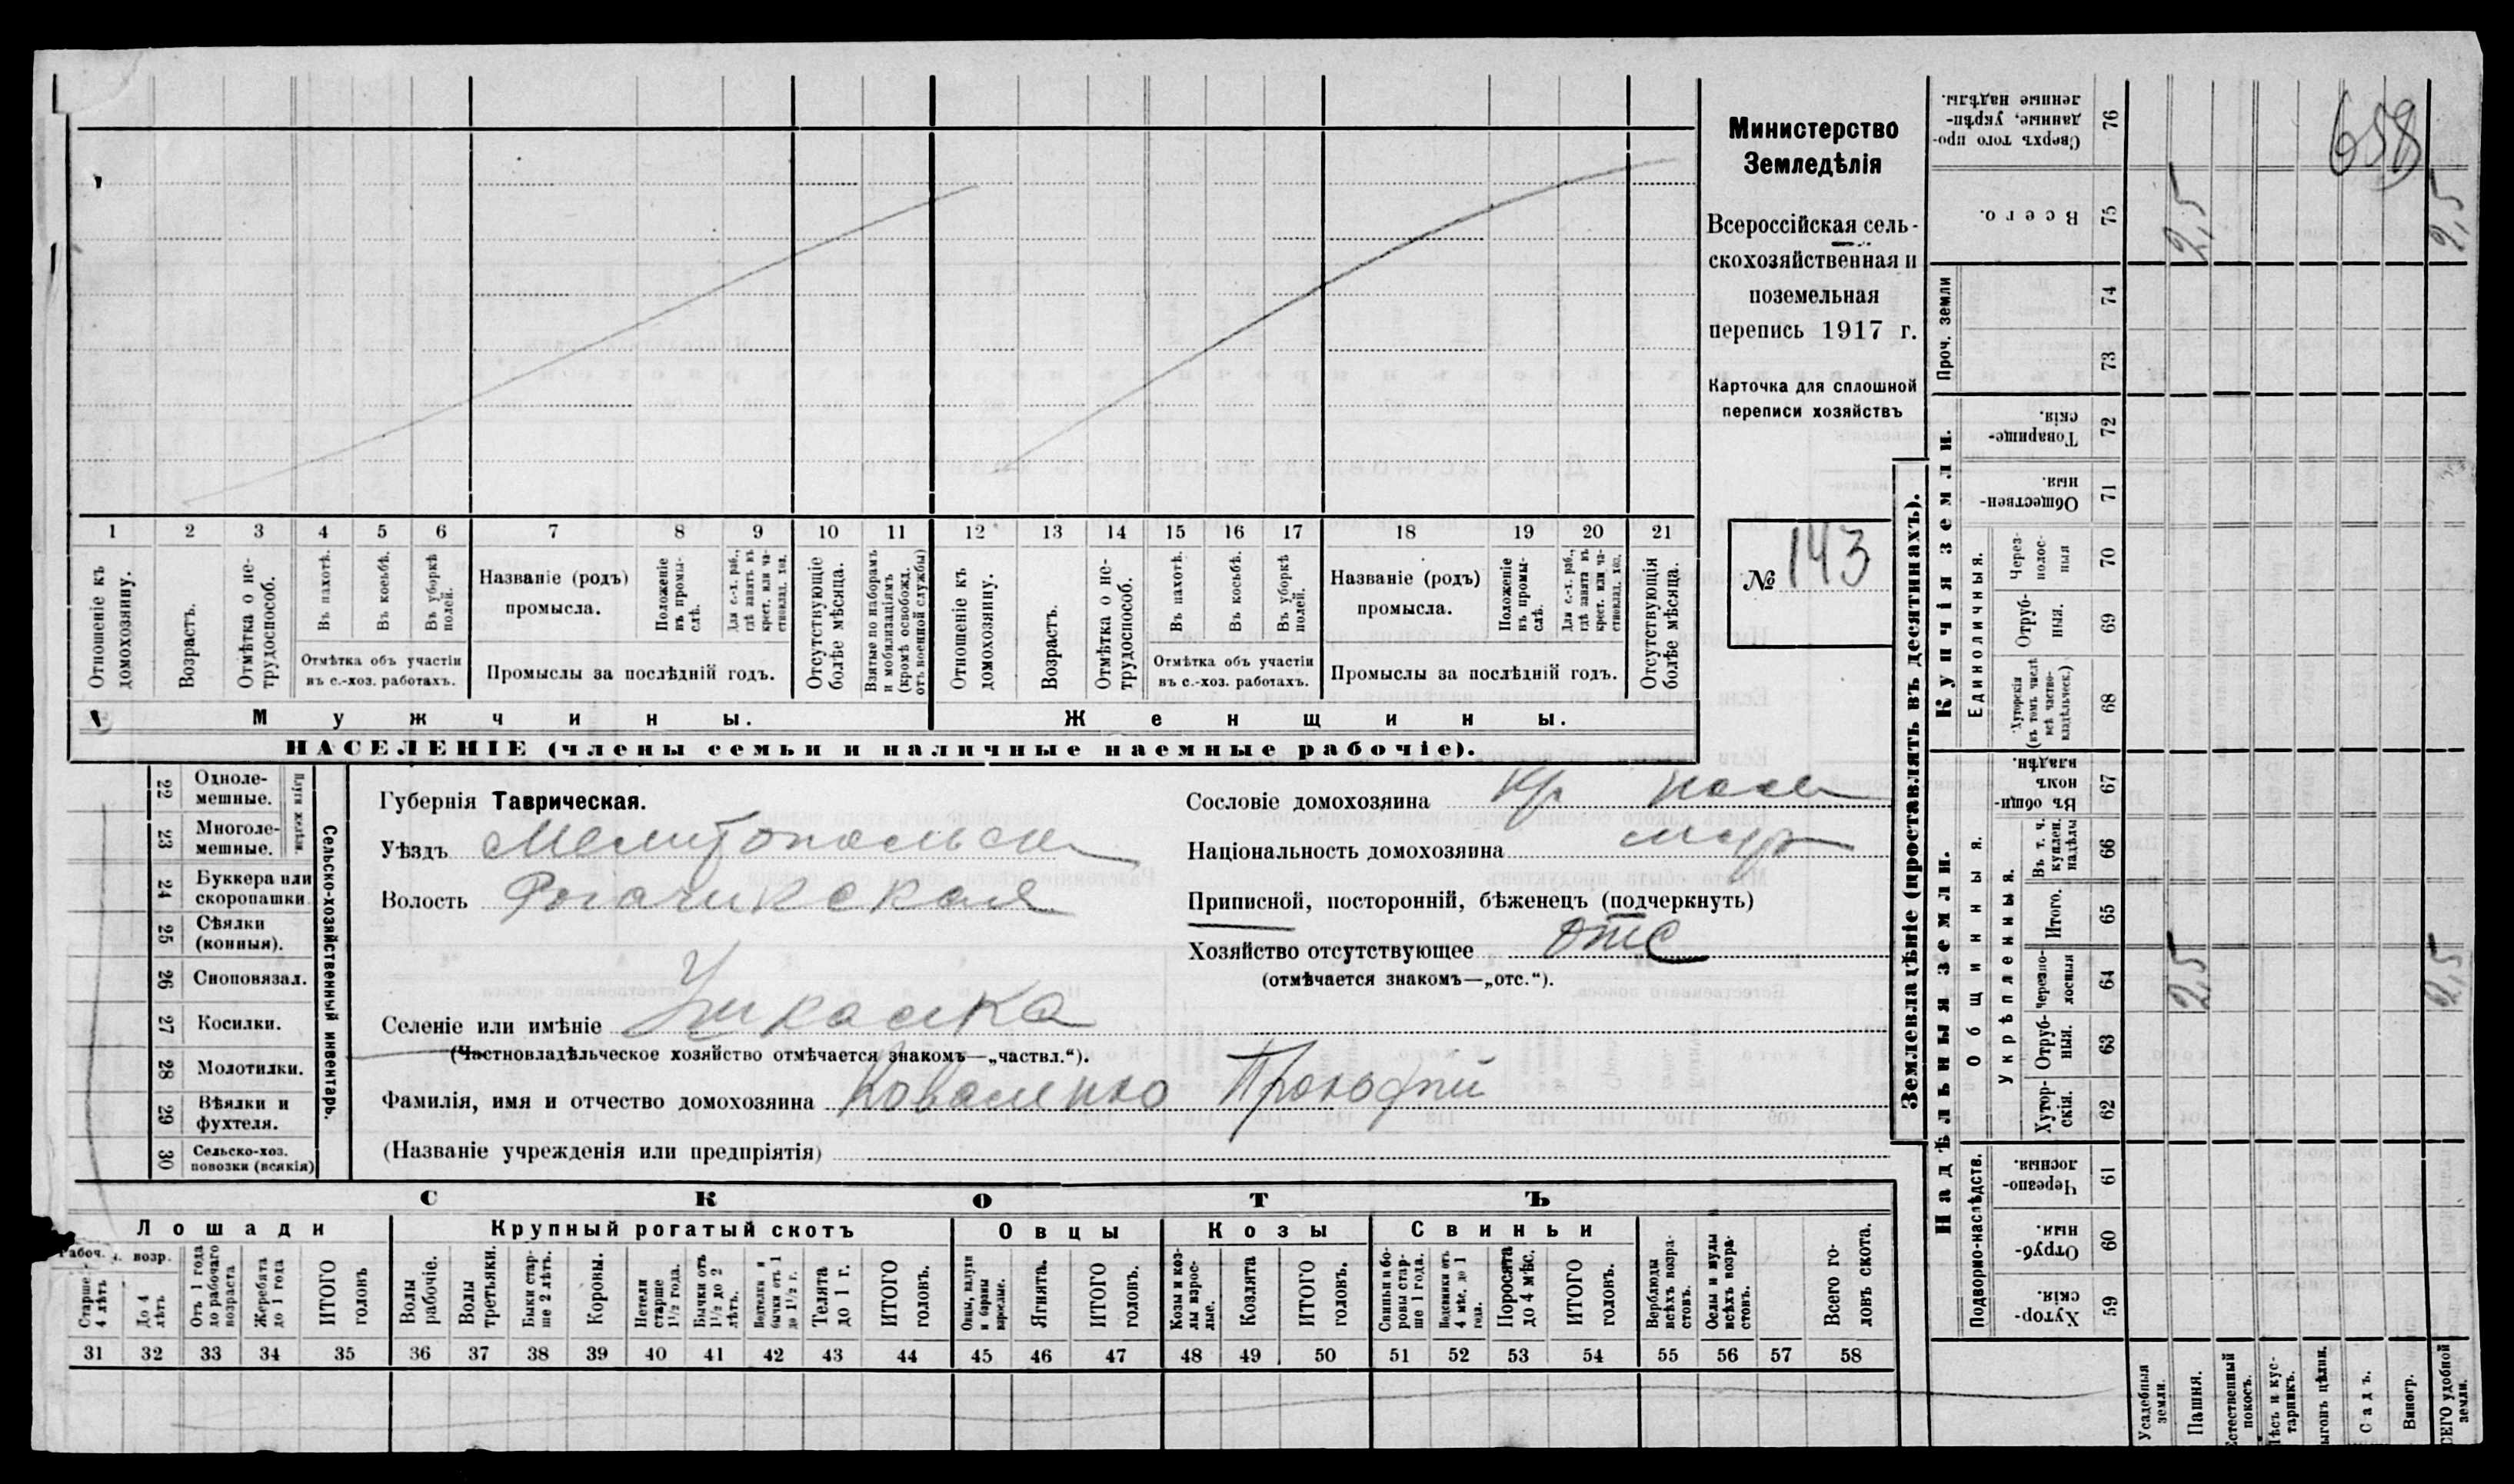 Министерство
Земледѣлія
Всероссійская сель-
скохозяйственная и
поземельная
перепись 1917 г.
Карточка для сплошной
переписи хозяйствъ
№ 143
658
1 2 3 4 5 6 7 8 9 10 11 12 13 14 15 16 17 18 19 20 21
Отношеніе къ домохозяину.
Возрастъ.
Отмѣтка о не-трудоспособ.
Въ пахотѣ.
Въ косьбѣ.
Въ уборкѣ полей.
Отмѣтка объ участіи
въ с.-хоз. работахъ.
Названіе (родъ)
промысла.
Положеніе въ промы-слѣ.
Для с.-х. раб., гдѣ занятъ въ крест. или ча-стновлад. хоз.
Промыслы за послѣдній годъ.
Отсутствующіе болѣе мѣсяца.
Взятые по наборамъ и мобилизаціямъ (кромѣ освобожд. отъ военной службы)
Отношеніе къ домохозяину.
Возрастъ.
Отмѣтка о не-трудоспособ.
Въ пахотѣ.
Въ косьбѣ.
Въ уборкѣ полей.
Отмѣтка объ участіи
въ с.-хоз. работахъ.
Названіе (родъ)
промысла.
Положеніе въ промы-слѣ.
Для с.-х. раб., гдѣ занята въ крест. или ча-стновлад. хоз.
Промыслы за послѣдній годъ.
Отсутствующія болѣе мѣсяца.
Мужчины.
Женщины.
НАСЕЛЕНІЕ (члены семьи и наличные наемные рабочіе).
22 Одноле-мешные.
23 Многоле-мешные.
24 Буккера или скоропашки
25 Сѣялки (конныя).
26 Сноповязал.
27 Косилки.
28 Молотилки.
29 Вѣялки и фухтеля.
30 Сельско-хоз. повозки (всякія)
Сельско-хозяйственный инвентарь.
Губернія Таврическая.
Уѣздъ Мелитопольск
Волость Рогачикская
Селеніе или имѣніе
(Частновладѣльческое хозяйство отмѣчается знакомъ—„частвл.“).
Фамилія, имя и отчество домохозяина Коваленко Прокофій
(Названіе учрежденія или предпріятія)
Сословіе домохозяина Кр
Національность домохозяина
Приписной, посторонній, бѣженецъ (подчеркнуть)
Хозяйство отсутствующее отс
(отмѣчается знакомъ—„отс.“).
СКОТЪ
Лошади
Крупный рогатый скотъ
Овцы
Козы
Свиньи
Рабоч. возр.
Старше 4 лѣтъ
До 4 лѣтъ
Отъ 1 года до рабочаго возраста
Жеребята до 1 года
ИТОГО головъ
Волы рабочіе.
Волы третьяки.
Быки стар-ше 2 лѣтъ.
Коровы.
Нетели старше 1½ года.
Бычки отъ 1½ до 2 лѣтъ.
Подтелки и бычки отъ 1 до 1½ г.
Телята до 1 г.
ИТОГО головъ.
Овцы, валухи и бараны взрослые.
Ягнята.
ИТОГО головъ.
Козы и коз-лы взрос-лые.
Козлята
ИТОГО головъ.
Свиньи и бо-ровы стар-ше 1 года.
Подсвинки отъ 4 мѣс. до 1 года.
Поросята до 4 мѣс.
ИТОГО головъ.
Верблюды всѣхъ возра-стовъ.
Ослы и мулы всѣхъ возра-стовъ.
Всего го-ловъ скота.
31 32 33 34 35 36 37 38 39 40 41 42 43 44 45 46 47 48 49 50 51 52 53 54 55 56 57 58
Землевладѣніе (проставлять въ десятинахъ).
Надѣльныя земли.
Купчія земли.
Проч. земли
Подворно-наслѣдств.
Общинныя.
Укрѣпленныя.
Единоличныя.
Сверхъ того про-данные, укрѣп-ленные надѣлы. 76
Всего. 75 2,5 2,5
74
73
Товарище-скія. 72
Обществен-ныя. 71
Через-полос-ныя 70
Отруб-ныя. 69
Хуторскія (въ томъ числѣ всѣ частно-владѣльческ.) 68
Въ общи-номъ владѣн. 67
Въ т. ч. куплен. надѣлы 66
Итого. 65
Черезпо-лосныя 64 2,5 2,5
Отруб-ныя. 63
Хутор-скія. 62
Черезпо-лосныя. 61
Отруб-ныя. 60
Хутор-скія. 59
Усадебныя земли.
Пашня.
Естественный покосъ.
Лѣсъ и кус-тарникъ.
ыгонъ цѣлин.
Садъ.
Виногр.
СЕГО удобной земли.